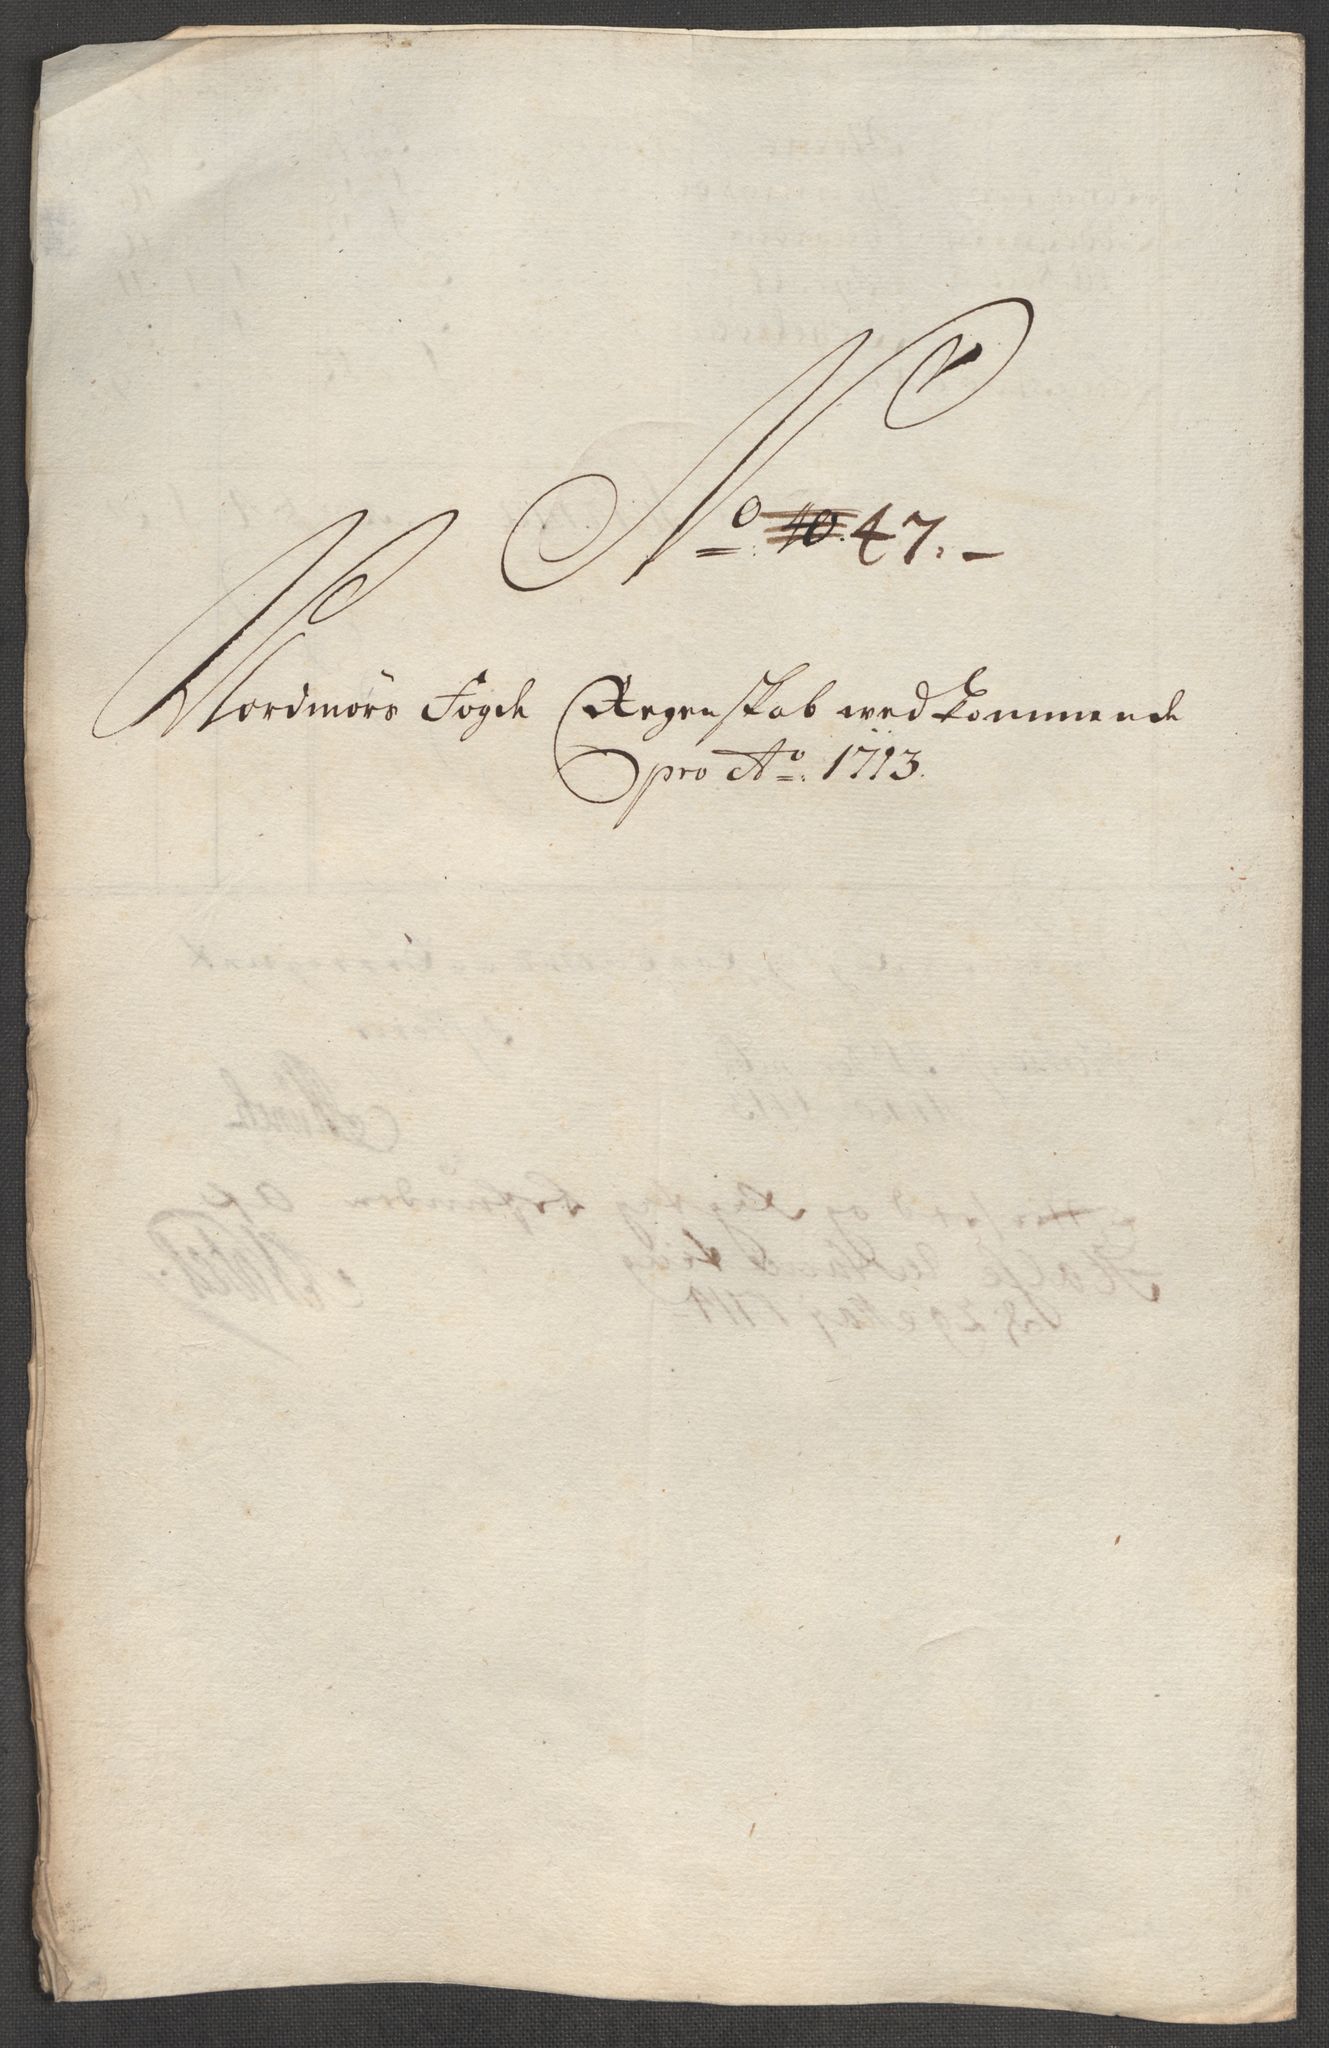 No 40. 47.
Nordmörs Fogde Regenskab wedkommende
pro Ao: 1713.